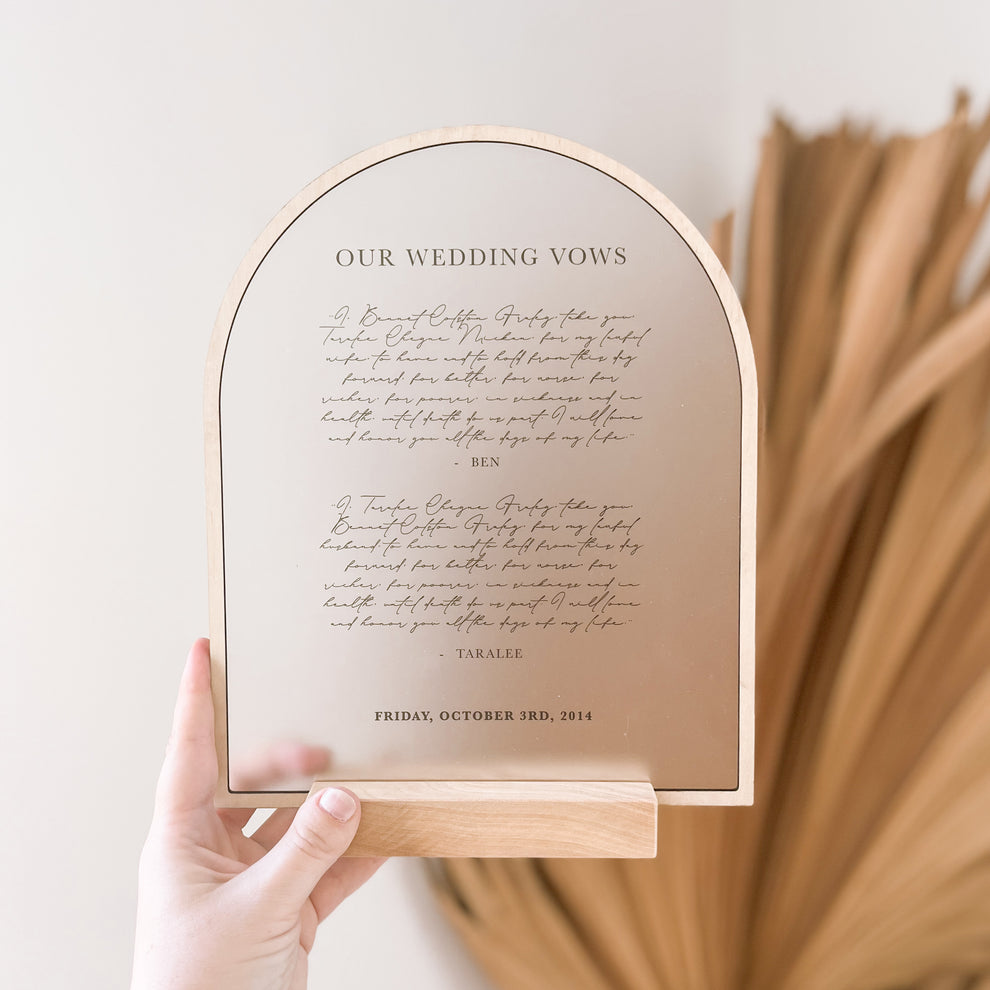 OUR WEDDING VOWS
"I, Bennet Colston Araby, take you,
Taralee Cheyne, for my lawful
wife, to have and to hold from this day
forward, for better, for worse, for
richer, for poorer, in sickness and in
health, until death do us part. I will love
and honor you all the days of my life."
- BEN
"I, Taralee Cheyne Araby, take you,
Bennet Colston Araby, for my lawful
husband, to have and to hold from this day
forward, for better, for worse, for
richer, for poorer, in sickness and in
health, until death do us part. I will love
and honor you all the days of my life."
- TARALEE
FRIDAY, OCTOBER 3RD, 2014